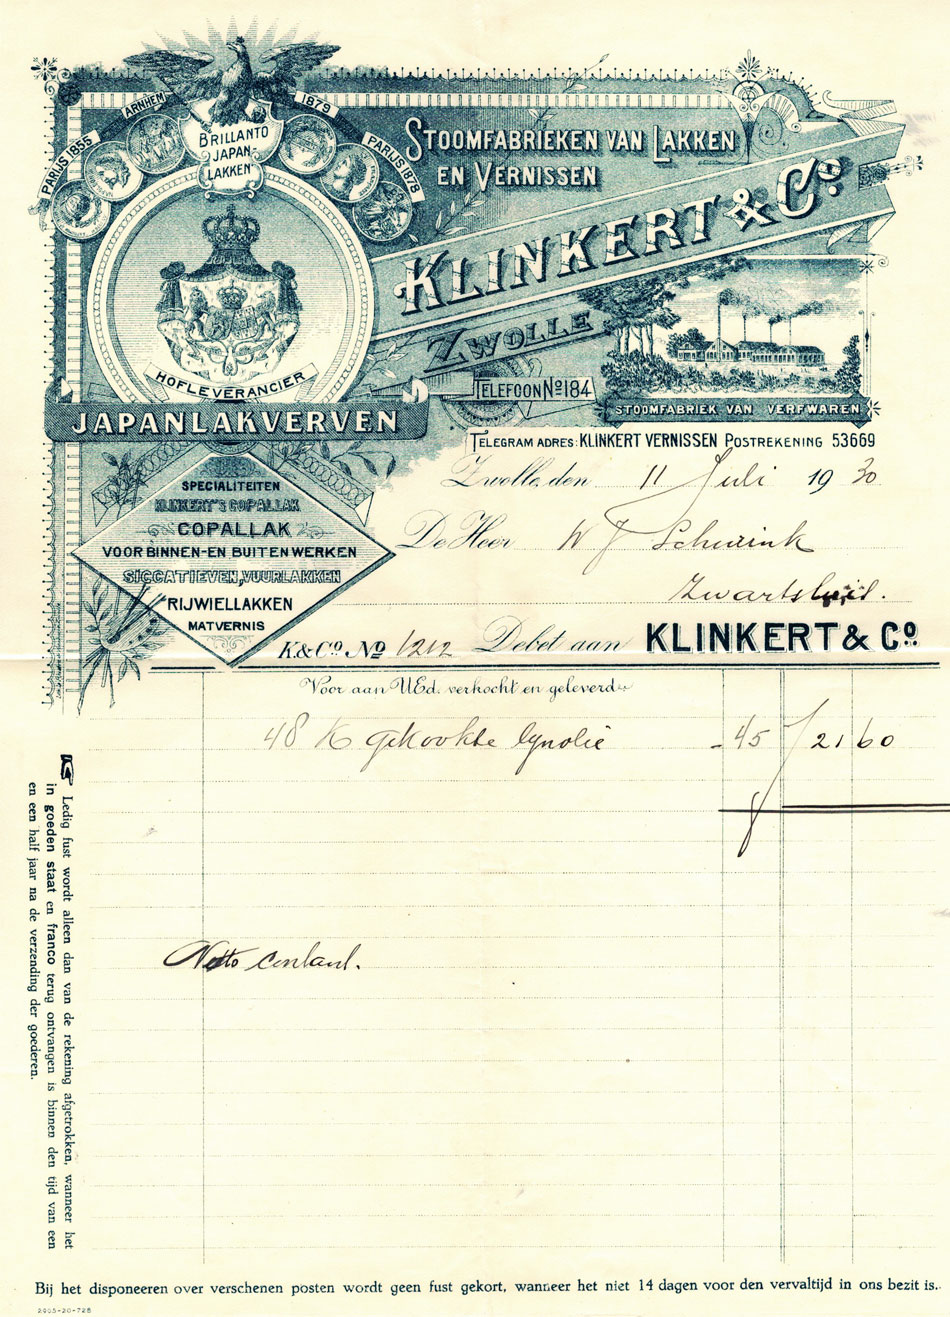 PARIJS 1855
ARNHEM 1879
PARIJS 1878
BRILLANTO
JAPAN-
LAKKEN
STOOMFABRIEKEN VAN LAKKEN
EN VERNISSEN
KLINKERT & Co.
ZWOLLE
TELEFOON No 184
HOFLEVERANCIER
JAPANLAKVERVEN
STOOMFABRIEK VAN VERFWAREN
TELEGRAM ADRES: KLINKERT VERNISSEN POSTREKENING 53669
Zwolle, den 11 Juli 1930
SPECIALITEITEN
KLINKERT'S COPALLAK
COPALLAK
VOOR BINNEN- EN BUITENWERKEN
SICCATIEVEN, VUURLAKKEN
RIJWIELLAKKEN
MATVERNIS
De Heer W J Schurink
Zwartsluis.
K. & Co. No 1212 Debet aan KLINKERT & Co.
Voor aan UEd. verkocht en geleverd:
48 K gekookte lynolie - 45 f 21 60
Netto contant.
Ledig fust wordt alleen dan van de rekening afgetrokken, wanneer het
in goeden staat en franco terug ontvangen is binnen den tijd van een
en een half jaar na de verzending der goederen.
Bij het disponeeren over verschenen posten wordt geen fust gekort, wanneer het niet 14 dagen voor den vervaltijd in ons bezit is.
2905-20-728